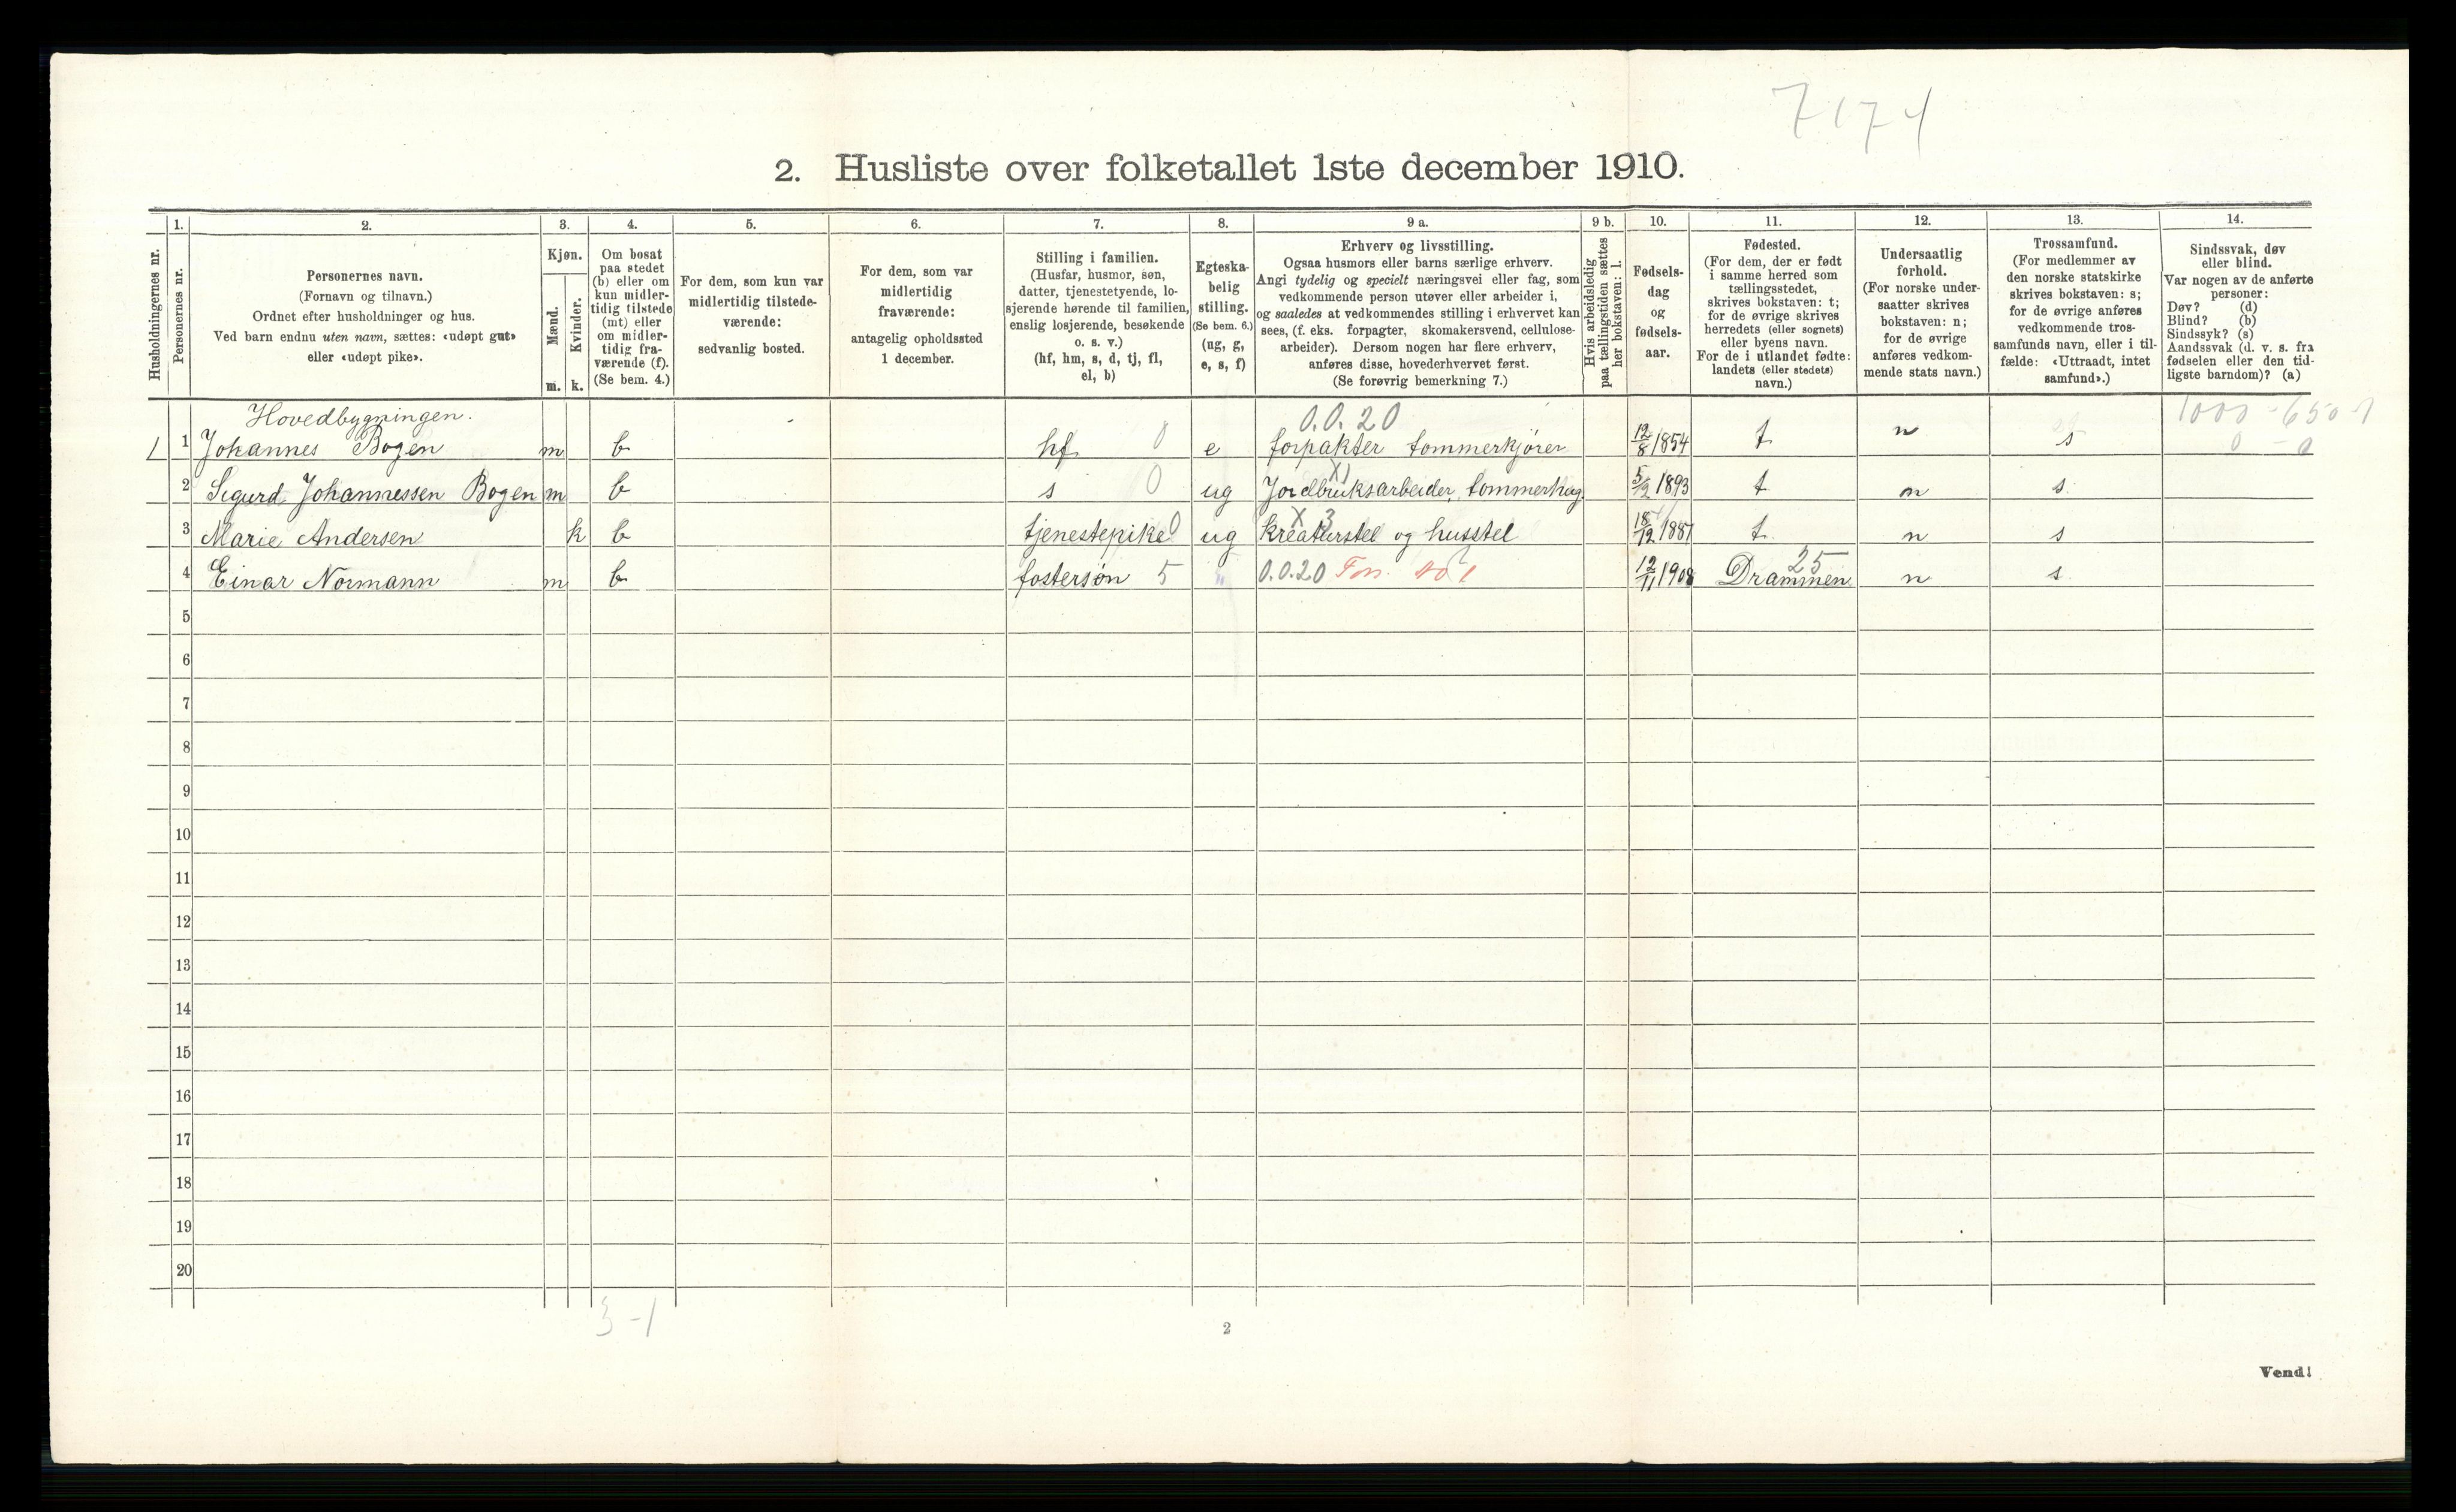 7174
2. Husliste over folketallet 1ste december 1910.
Husholdningernes nr.
1.
Personernes nr.
2.
Personernes navn.
(Fornavn og tilnavn.)
Ordnet efter husholdninger og hus.
Ved barn endnu uten navn, sættes: «udøpt gut»
eller «udøpt pike».
3.
Kjøn.
Mænd.
m.
Kvinder.
k.
4.
Om bosat
paa stedet
(b) eller om
kun midler-
tidig tilstede
(mt) eller
om midler-
tidig fra-
værende (f).
(Se bem. 4.)
5.
For dem, som kun var
midlertidig tilstede-
værende:
sedvanlig bosted.
6.
For dem, som var
midlertidig
fraværende:
antagelig opholdssted
1 december.
7.
Stilling i familien.
(Husfar, husmor, søn,
datter, tjenestetyende, lo-
sjerende hørende til familien,
enslig losjerende, besøkende
o. s. v.)
(hf, hm, s, d, tj, fl,
el, b)
8.
Egteska-
belig
stilling.
(Se bem. 6.)
(ug, g,
e, s, f)
9 a.
Erhverv og livsstilling.
Ogsaa husmors eller barns særlige erhverv.
Angi tydelig og specielt næringsvei eller fag, som
vedkommende person utøver eller arbeider i,
og saaledes at vedkommendes stilling i erhvervet kan
sees, (f. eks. forpagter, skomakersvend, cellulose-
arbeider). Dersom nogen har flere erhverv,
anføres disse, hovederhvervet først.
(Se forøvrig bemerkning 7.)
9 b.
Hvis arbeidsledig
paa tællingstiden sættes
her bokstaven: l.
10.
Fødsels-
dag
og
fødsels-
aar.
11.
Fødested.
(For dem, der er født
i samme herred som
tællingsstedet,
skrives bokstaven: t;
for de øvrige skrives
herredets (eller sognets)
eller byens navn.
For de i utlandet fødte:
landets (eller stedets)
navn.)
12.
Undersaatlig
forhold.
(For norske under-
saatter skrives
bokstaven: n;
for de øvrige
anføres vedkom-
mende stats navn.)
13.
Trossamfund.
(For medlemmer av
den norske statskirke
skrives bokstaven: s;
for de øvrige anføres
vedkommende tros-
samfunds navn, eller i til-
fælde: «Uttraadt, intet
samfund».)
14.
Sindssvak, døv
eller blind.
Var nogen av de anførte
personer:
Døv? (d)
Blind? (b)
Sindssyk? (s)
Aandssvak (d. v. s. fra
fødselen eller den tid-
ligste barndom)? (a)
Hovedbygningen. 0.0.20 1000-650-1
1 1 Johannes Bogen m b hf 0 e forpakter tømmerkjører 12/8 1854 t n s 0 - 0
2 Sigurd Johannessen Bogen m b s 0 ug Jordbruksarbeider, tømmerhug. 5/12 1893 t n s
X 3
3 Marie Andersen k b tjenestepike 0 ug kreaturstel og husstel 18/12 1887 t n s
25
4 Einar Normann m b fostersøn 5 0.0.20 12/11 1908 Drammen n s
5
6
7
8
9
10
11
12
13
14
15
16
17
18
19
20
3-1
2
Vend!